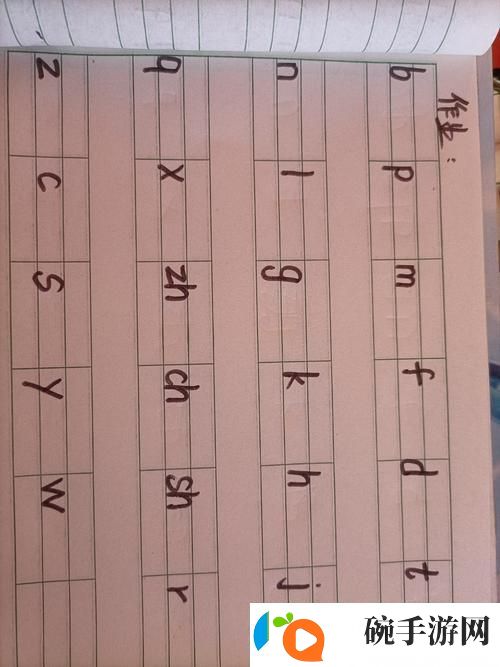 作业:
b p m f d t
n l g k h j
q x zh ch sh r
z c s y w
碗手游网